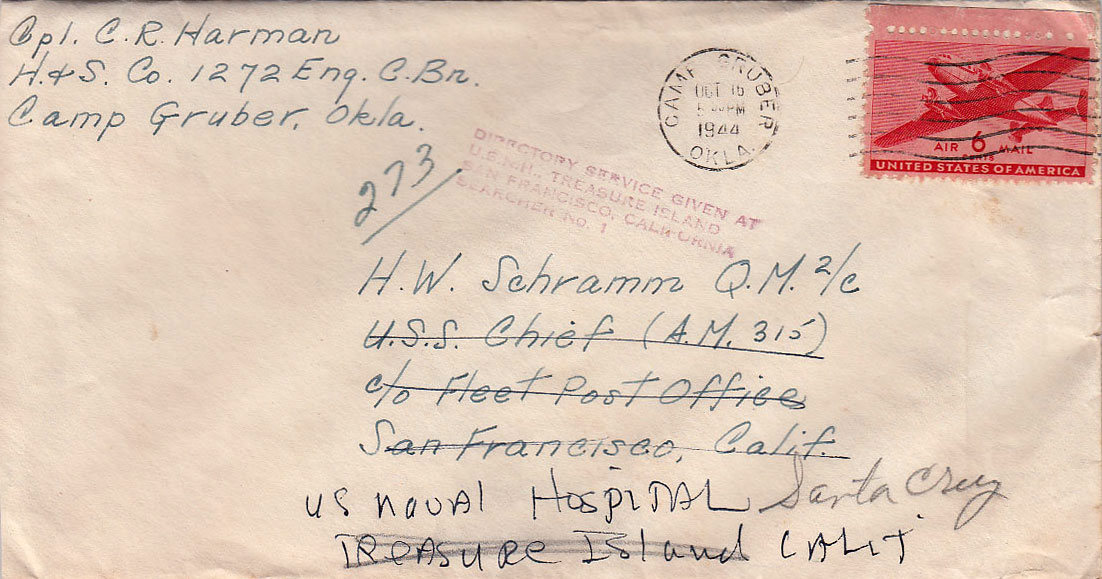 Cpl. C. R. Harman
H. & S. Co. 1272 Eng. C. Bn.
Camp Gruber, Okla.
CAMP GRUBER
OCT 16
PM
1944
OKLA.
AIR 6 MAIL
CENTS
UNITED STATES OF AMERICA
273
DIRECTORY SERVICE GIVEN AT
U.S.N.H. TREASURE ISLAND
SAN FRANCISCO, CALIFORNIA
SEARCHER No. 1
H. W. Schramm Q.M. 2/c
U.S.S. Chief (A.M. 315)
c/o Fleet Post Office
San Francisco, Calif.
US NAVAL HOSPITAL Santa Cruz
TREASURE Island CALIF